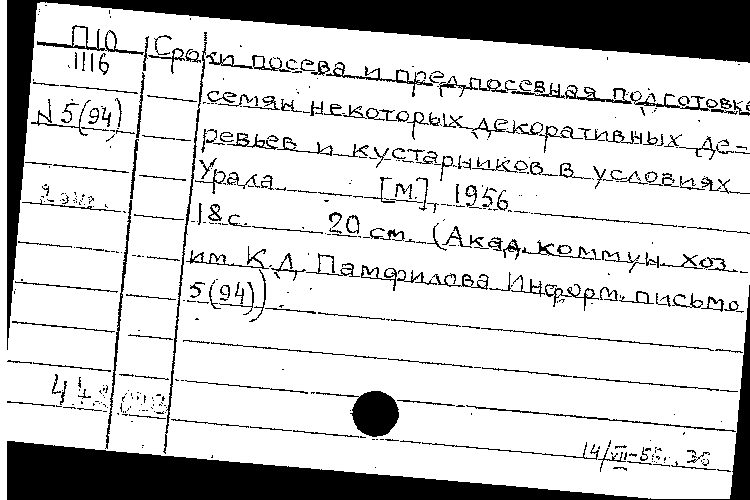 П10
1116
№ 5(94)
2 экз.
Сроки посева и предпосевная подготовка
семян некоторых декоративных де-
ревьев и кустарников в условиях
Урала. [М], 1956
18 с. 20 см. (Акад. коммун. хоз.
им. К.Д. Памфилова. Информ. письмо
5(94)).
14/VII-56г.